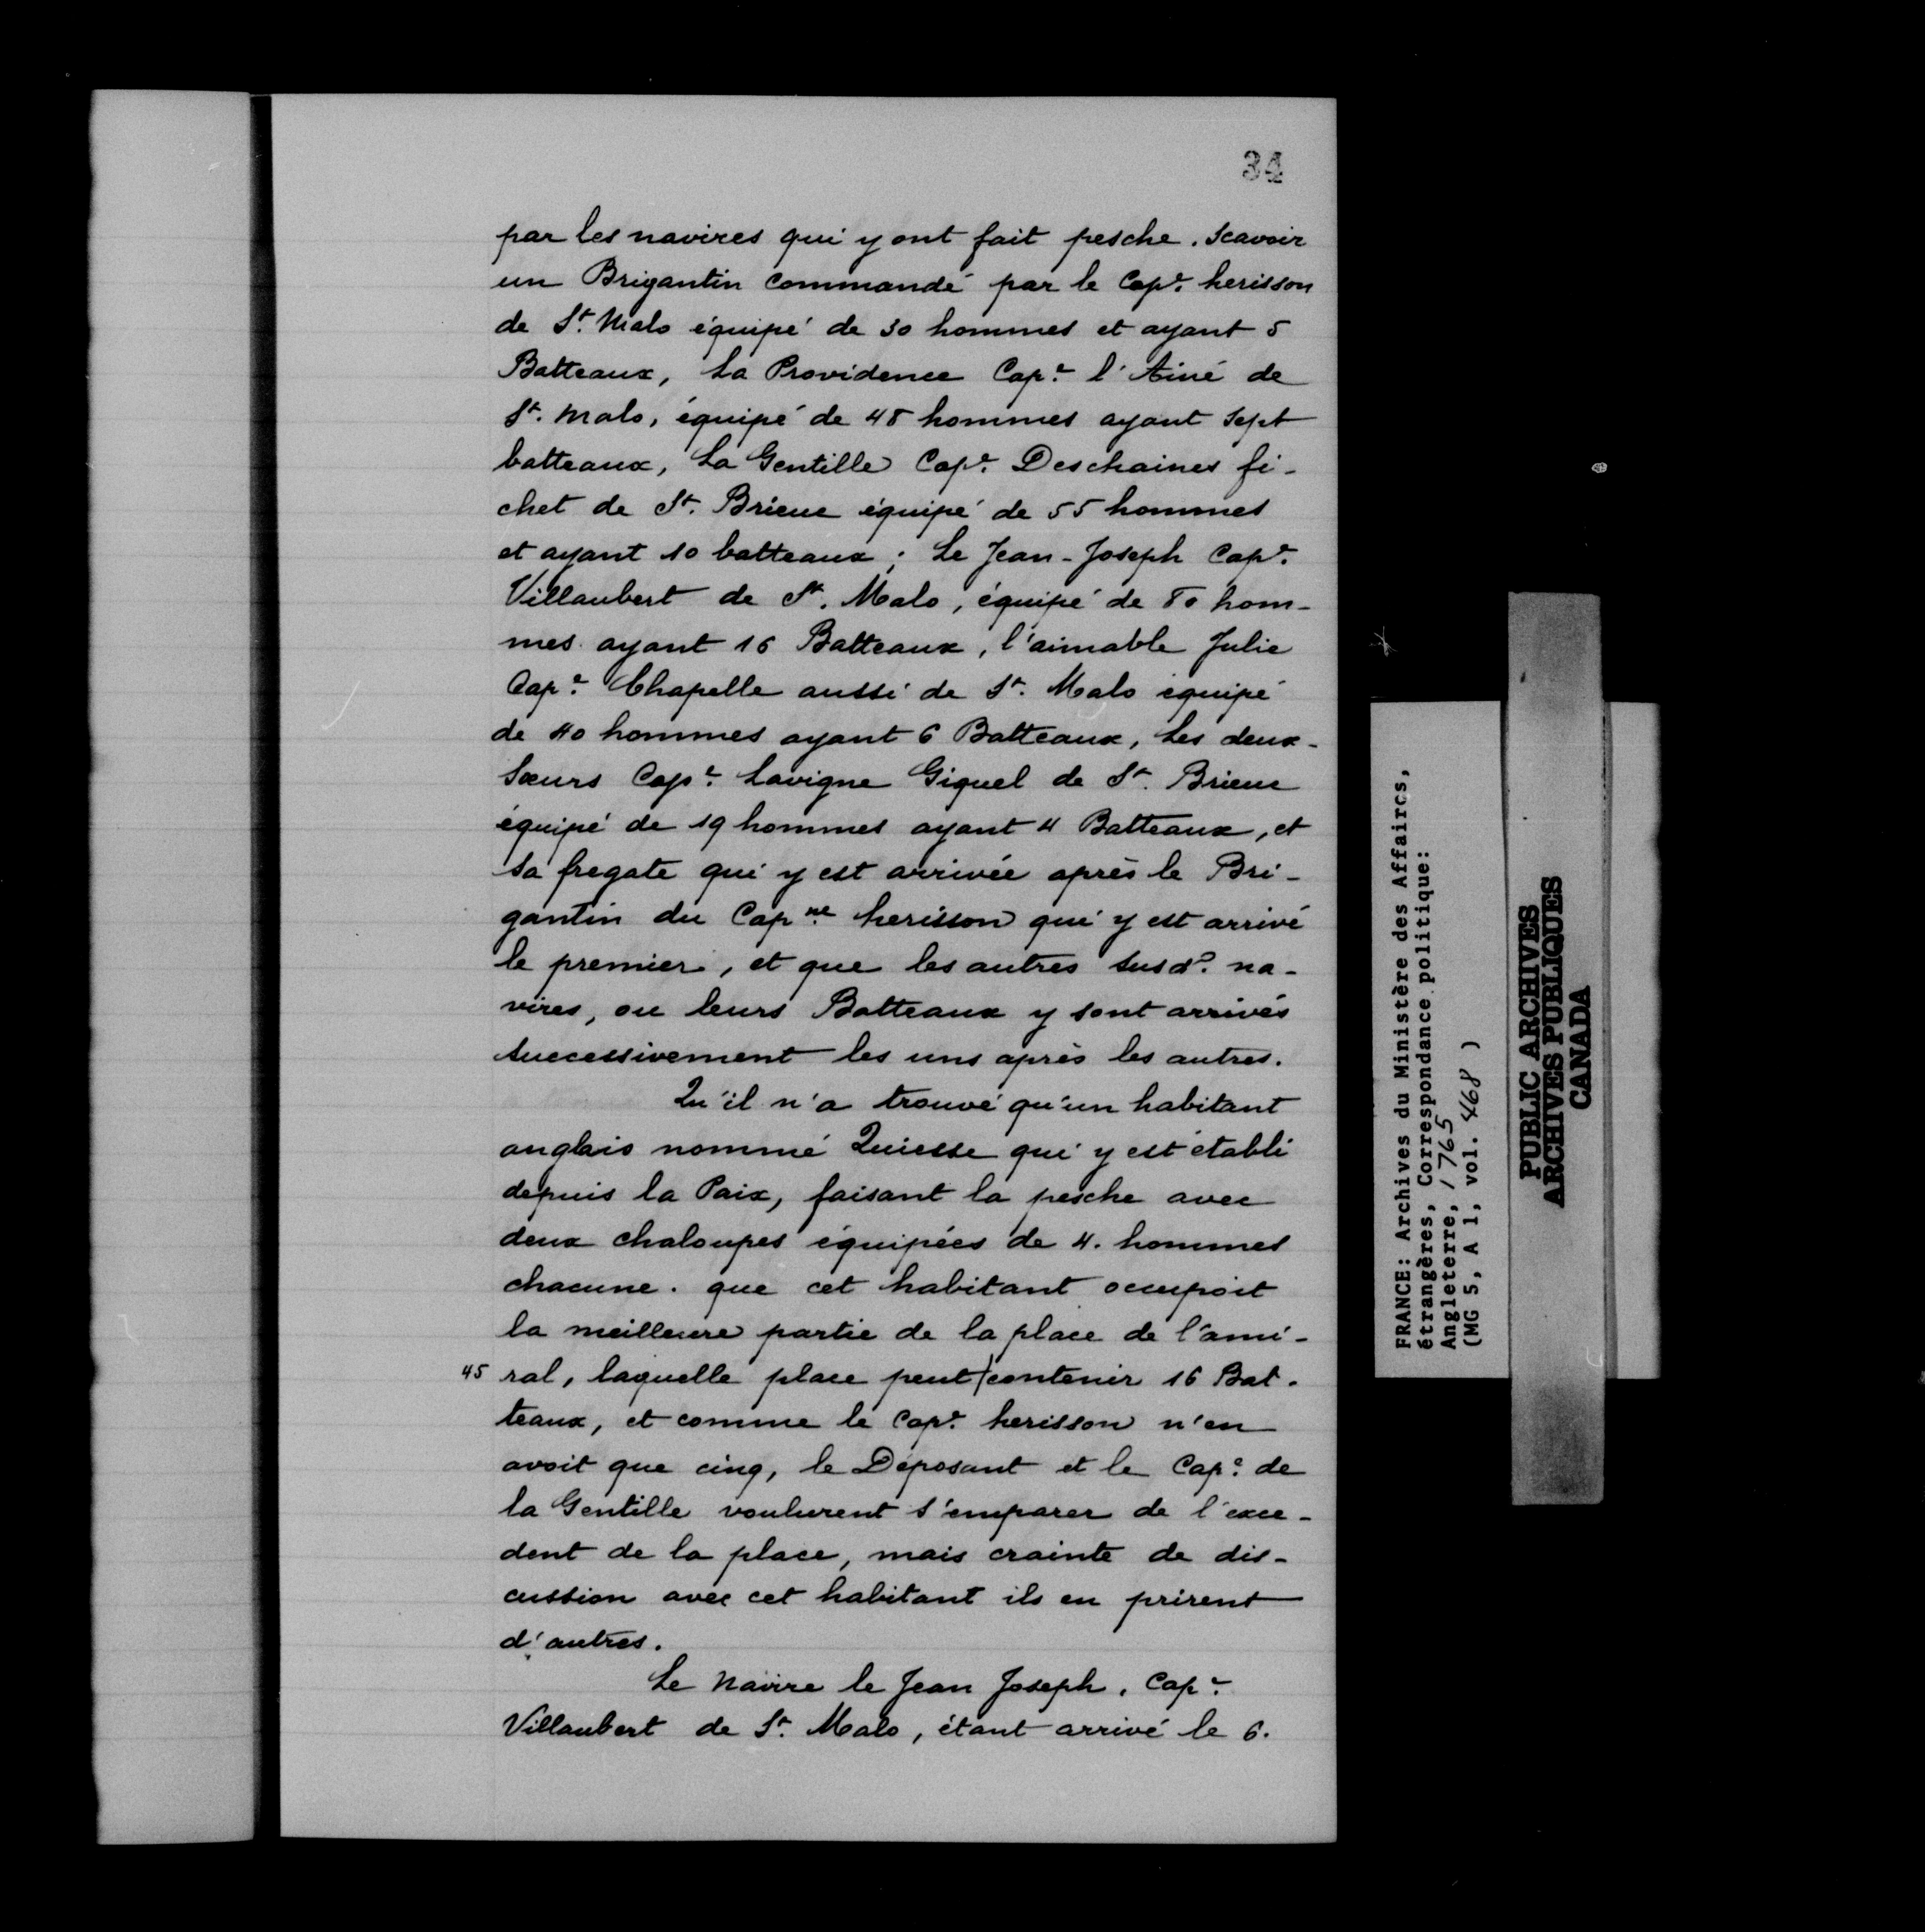 34
par les navires qui y ont fait pesche. Scavoir
un Brigantin commandé par le Cap.e herisson
de S.t Malo équipé de 30 hommes et ayant 5
Batteaux, La Providence Cap.e l'Ainé de
S.t Malo, équipé de 48 hommes ayant Sept
batteaux, La Gentille Cap.e Deschaines fi-
chet de S.t Brieuc équipé de 55 hommes
et ayant 10 batteaux; Le Jean-Joseph Cap.e
Villaubert de S.t Malo, équipé de 80 hom-
mes ayant 16 Batteaux, l'aimable Julie
Cap.e Chapelle aussi de S.t Malo équipé
de 40 hommes ayant 6 Batteaux, Les deux-
Sœurs Cap.e Lavigne Giquel de S.t Brieuc
équipé de 19 hommes ayant 4 Batteaux, et
sa fregate qui y est arrivée après le Bri-
gantin du Cap.ne herisson qui y est arrivé
le premier, et que les autres susd.s na-
vires, ou leurs Batteaux y sont arrivés
successivement les uns après les autres.
Qu'il n'a trouvé qu'un habitant
anglais nommé Quiesse qui y est établi
depuis la Paix, faisant la pesche avec
deux chaloupes équipées de 4. hommes
chacune. que cet habitant occupoit
la meilleure partie de la place de l'ami-
45 ral, laquelle place peut/contenir 16 Bat-
teaux, et comme le Cap.e herisson n'en
avoit que cinq, le Déposant et le Cap.e de
la Gentille voulurent s'emparer de l'exce-
dent de la place, mais crainte de dis-
cussion avec cet habitant ils en prirent
d'autres.
Le Navire le Jean Joseph, Cap.e
Villaubert de S.t Malo, étant arrivé le 6.
FRANCE: Archives du Ministère des Affaires,
étrangères, Correspondance politique:
Angleterre, 1765
(MG 5, A 1, vol. 468 )
PUBLIC ARCHIVES
ARCHIVES PUBLIQUES
CANADA